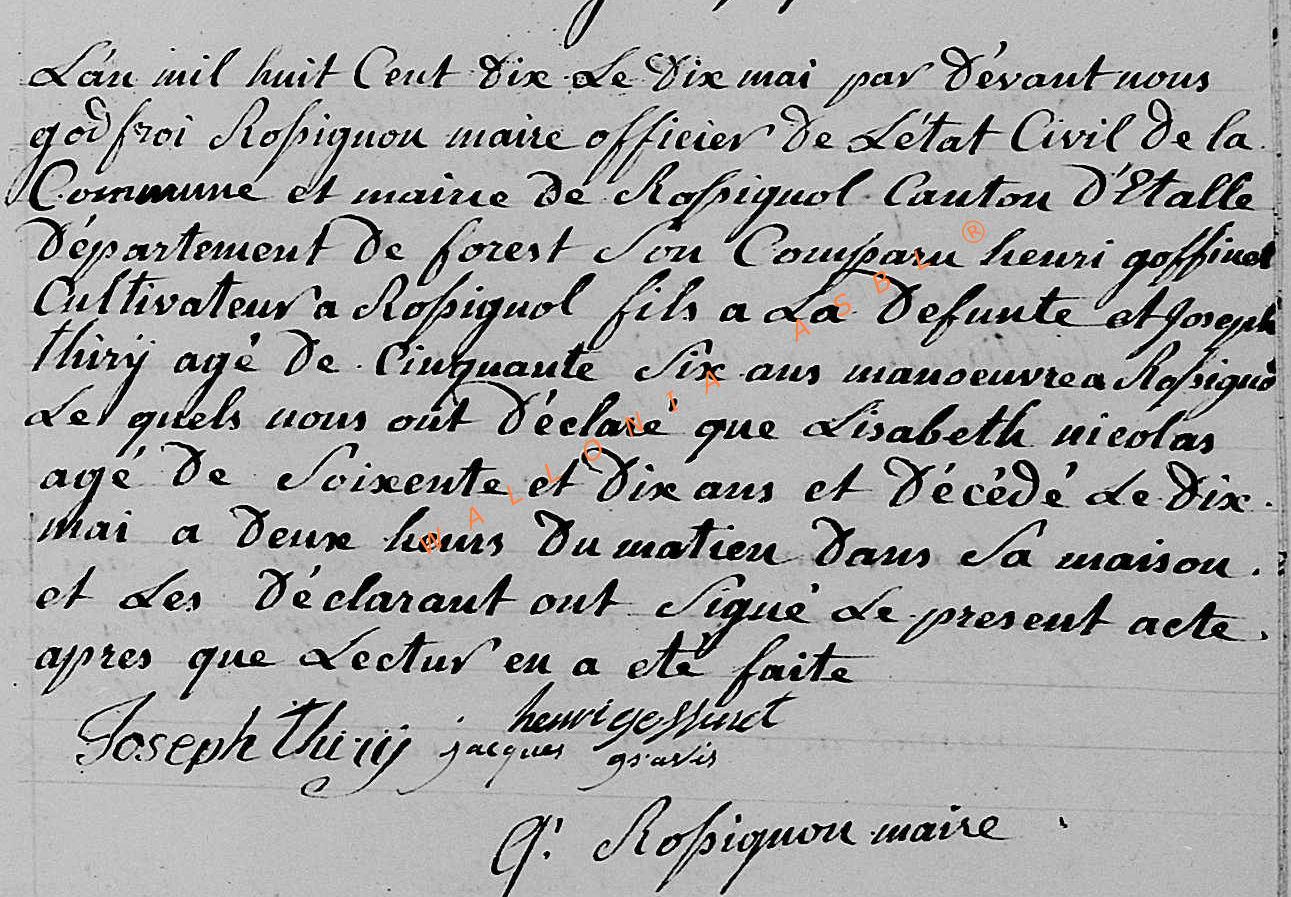 L'án mil huit Cent Dix Le Dix mai par Dévant nous
godfroi Rossignon maire officier De L'état Civil De la
Commune et mairie De Rossignol Canton D'Etalle
Département De forest Son Comparu henri goffinet
Cultivateur a Rossignol fils a La Defunte et Joseph
thirÿ agé De Cinquante Six ans manoeuvre a Rossigno
Le quels nous ont Déclaré que Lisabeth nicolas
agé De Soixente et Dix ans et Décédé Le Dix
mai a Deux hours Du matien Dans Sa maison.
et Les Déclarant ont Signé Le present acte.
apres que Lectur en a eté faite
henri goffinet
Joseph thirÿ jacques gravis
G: Rossignon maire
WALLONIA ASBL ®